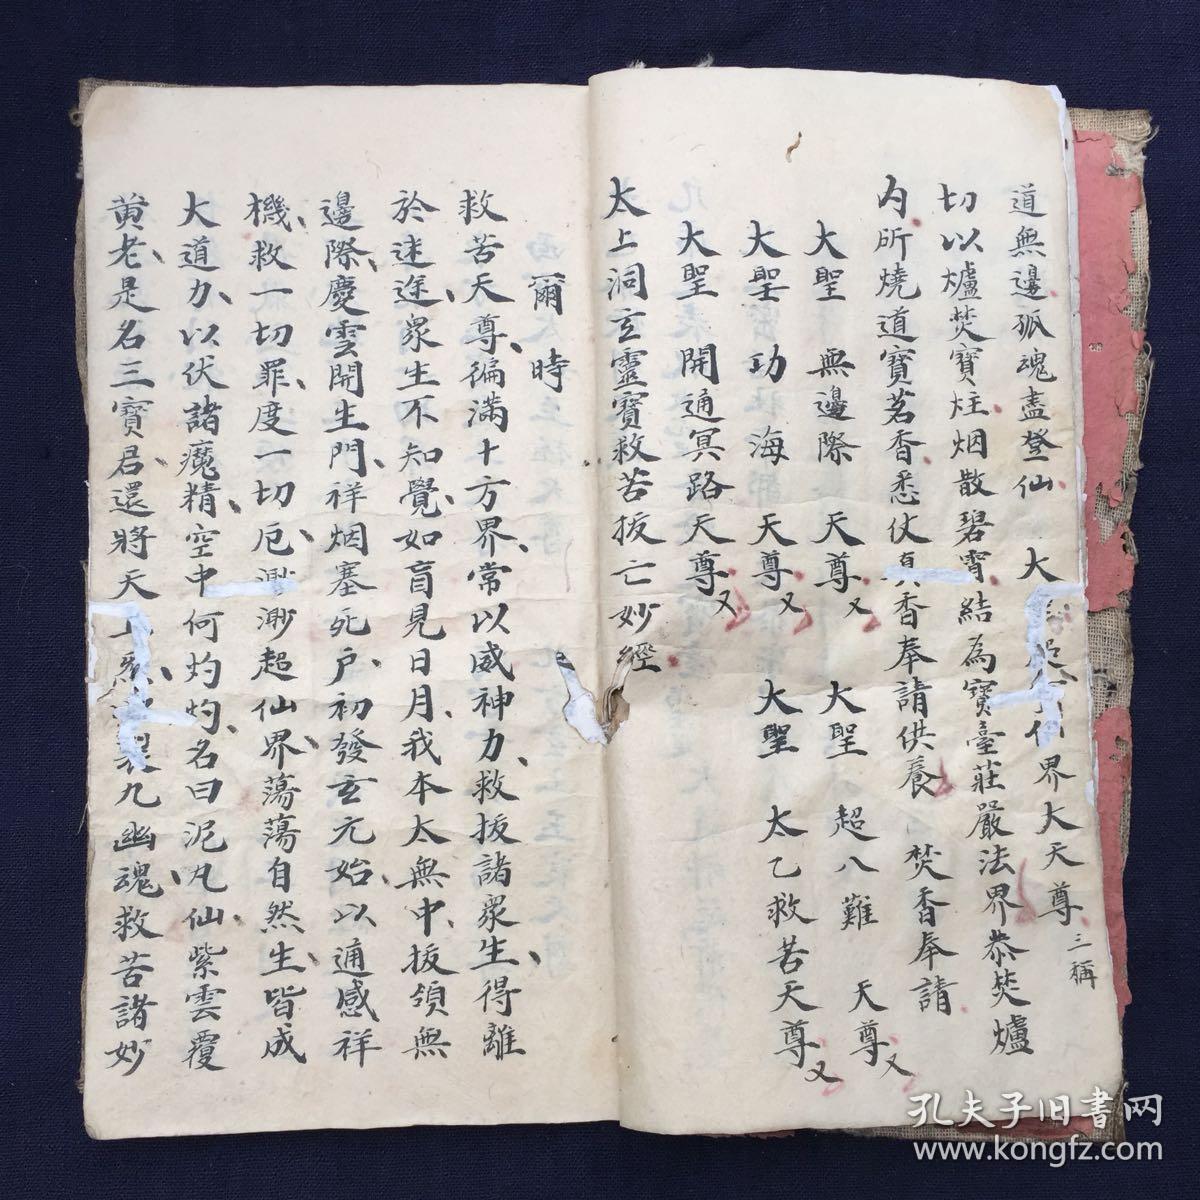 道無邊孤魂盡登仙 大 界大天尊三稱
切以爐焚寶炷烟散碧霄結為寶臺莊嚴法界恭焚爐
內所燒道寶茗香悉仗真香奉請供養 焚香奉請
大聖 無邊際 天尊又 大聖 超八難 天尊又
大聖 功海 天尊又 大聖 太乙救苦天尊又
大聖 開通冥路天尊又
太上洞玄靈寶救苦拔亡妙經
爾時
救苦天尊徧滿十方界常以威神力救拔諸眾生得離
於迷途眾生不知覺如盲見日月我本太無中拔領無
邊際慶雲開生門祥烟塞死户初發玄元始以通感祥
機救一切罪度一切厄渺渺超仙界蕩蕩自然生皆成
大道力以伏諸魔精空中何灼灼名曰泥丸仙紫雲覆
黃老是名三寶君還將天上 製九幽魂救苦諸妙
孔夫子旧書网
www.kongfz.com